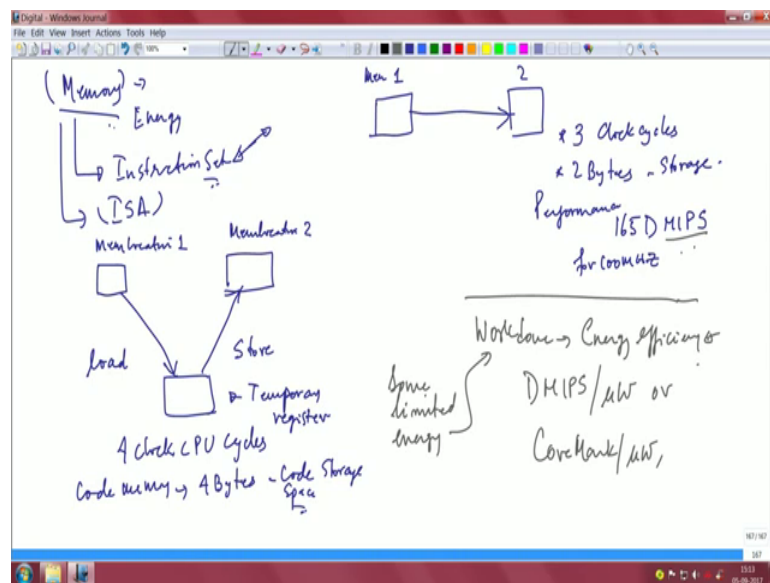 Digital - Windows Journal
File Edit View Insert Actions Tools Help
100%
(Memory) →
Energy
→ Instruction Sets
→ (ISA)
Mem location 1
Mem location 2
load
Store
→ Temporary
register
4 clock CPU Cycles
Code memory → 4 Bytes - Code Storage
Space
Mem 1
2
* 3 Clock cycles
* 2 Bytes - Storage.
Performance
165 DMIPS
for 100MHz
Workdone → Energy efficiency
Some
limited
energy
DMIPS/μW or
CoreMark/μW,
167/167
167
15:13
05-09-2017